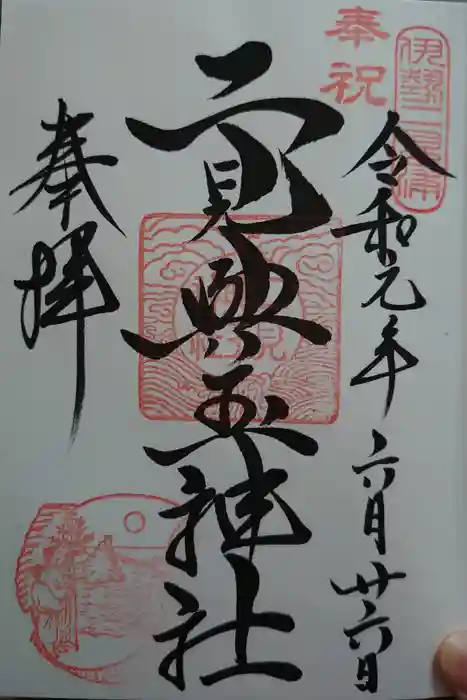 伊勢二見浦
奉祝
令和元年六月廿六日
二見興玉神社
奉拝